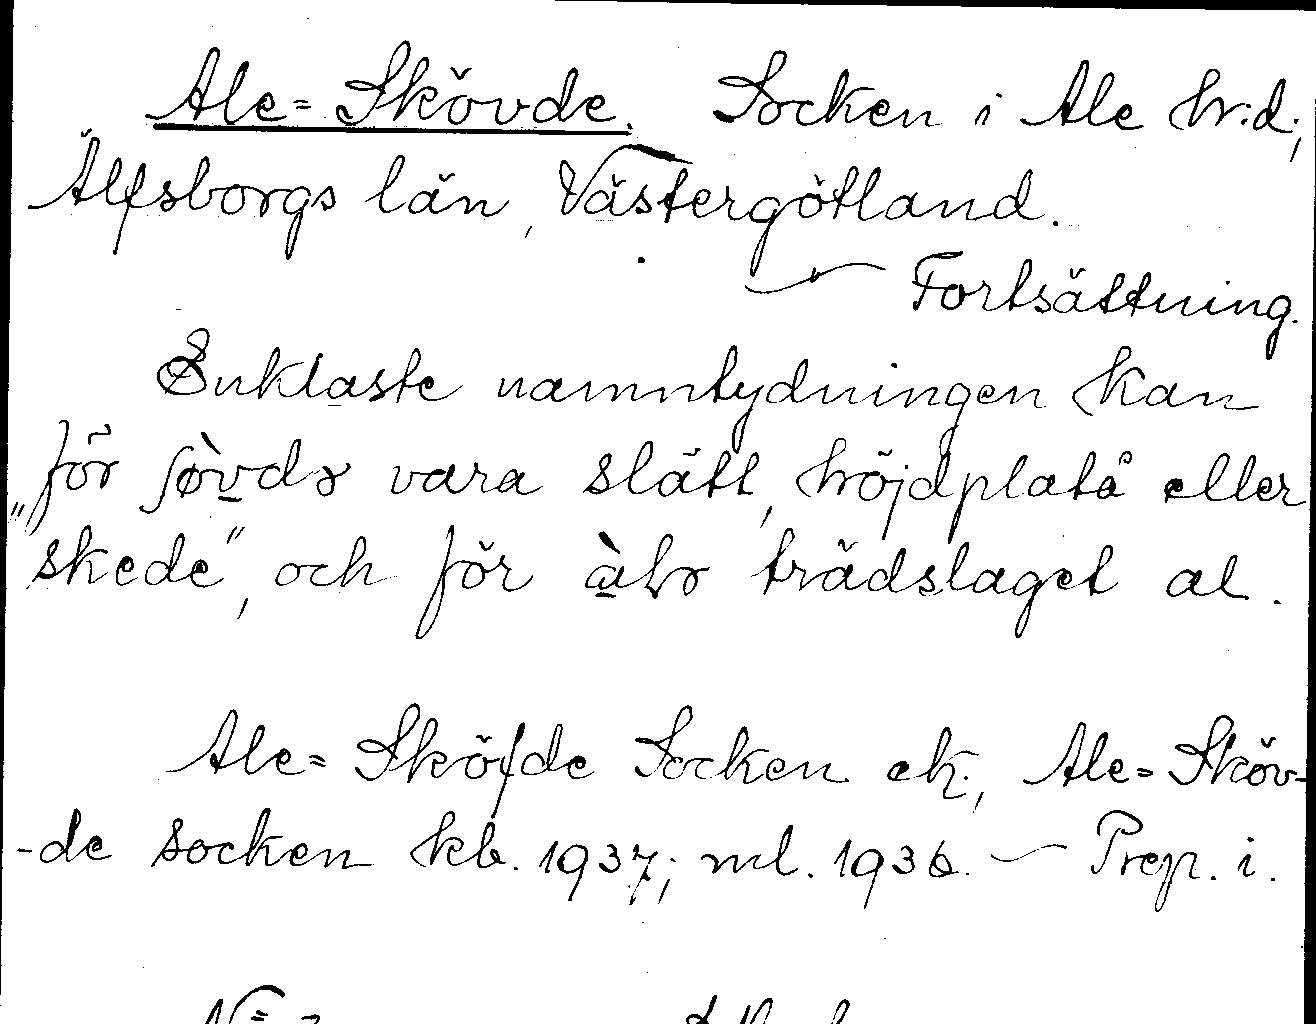 Ale-Skövde. Socken i Ale h:d;
Älfsborgs län, Västergötland.
— Fortsättning.
Enklaste namntydningen kan
för ʃøvdɘ vara slätt, höjdplatå eller
"skede", och för àlɘ trädslaget al.
Ale-Sköfde Socken ek., Ale-Sköv-
-de socken kb. 1937; ml. 1936. — Prep. i.